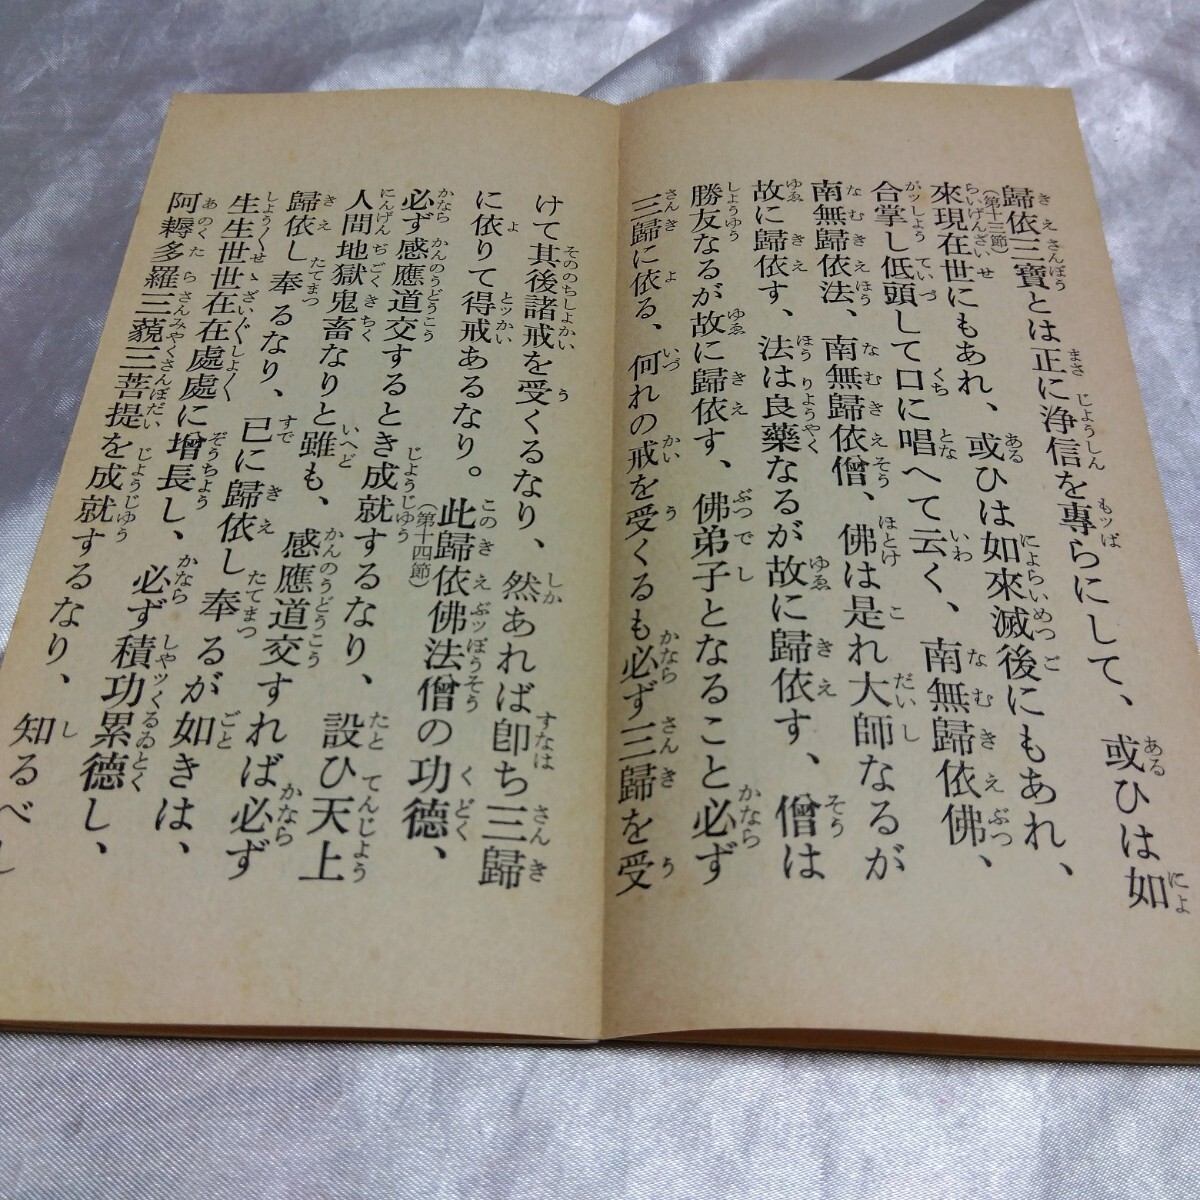 歸依三寶とは正に浄信を專らにして、或ひは如
(第十三節)
來現在世にもあれ、或ひは如來滅後にもあれ、
合掌し低頭して口に唱へて云く、南無歸依佛、
南無歸依法、南無歸依僧、佛は是れ大師なるが
故に歸依す、法は良藥なるが故に歸依す、僧は
勝友なるが故に歸依す、佛弟子となること必ず
三歸に依る、何れの戒を受くるも必ず三歸を受
けて其後諸戒を受くるなり、然あれば卽ち三歸
に依りて得戒あるなり。此歸依佛法僧の功德、
(第十四節)
必ず感應道交するとき成就するなり、設ひ天上
人間地獄鬼畜なりと雖も、感應道交すれば必ず
歸依し奉るなり、已に歸依し奉るが如きは、
生生世世在在處處に增長し、必ず積功累德し、
阿耨多羅三藐三菩提を成就するなり、知るべし